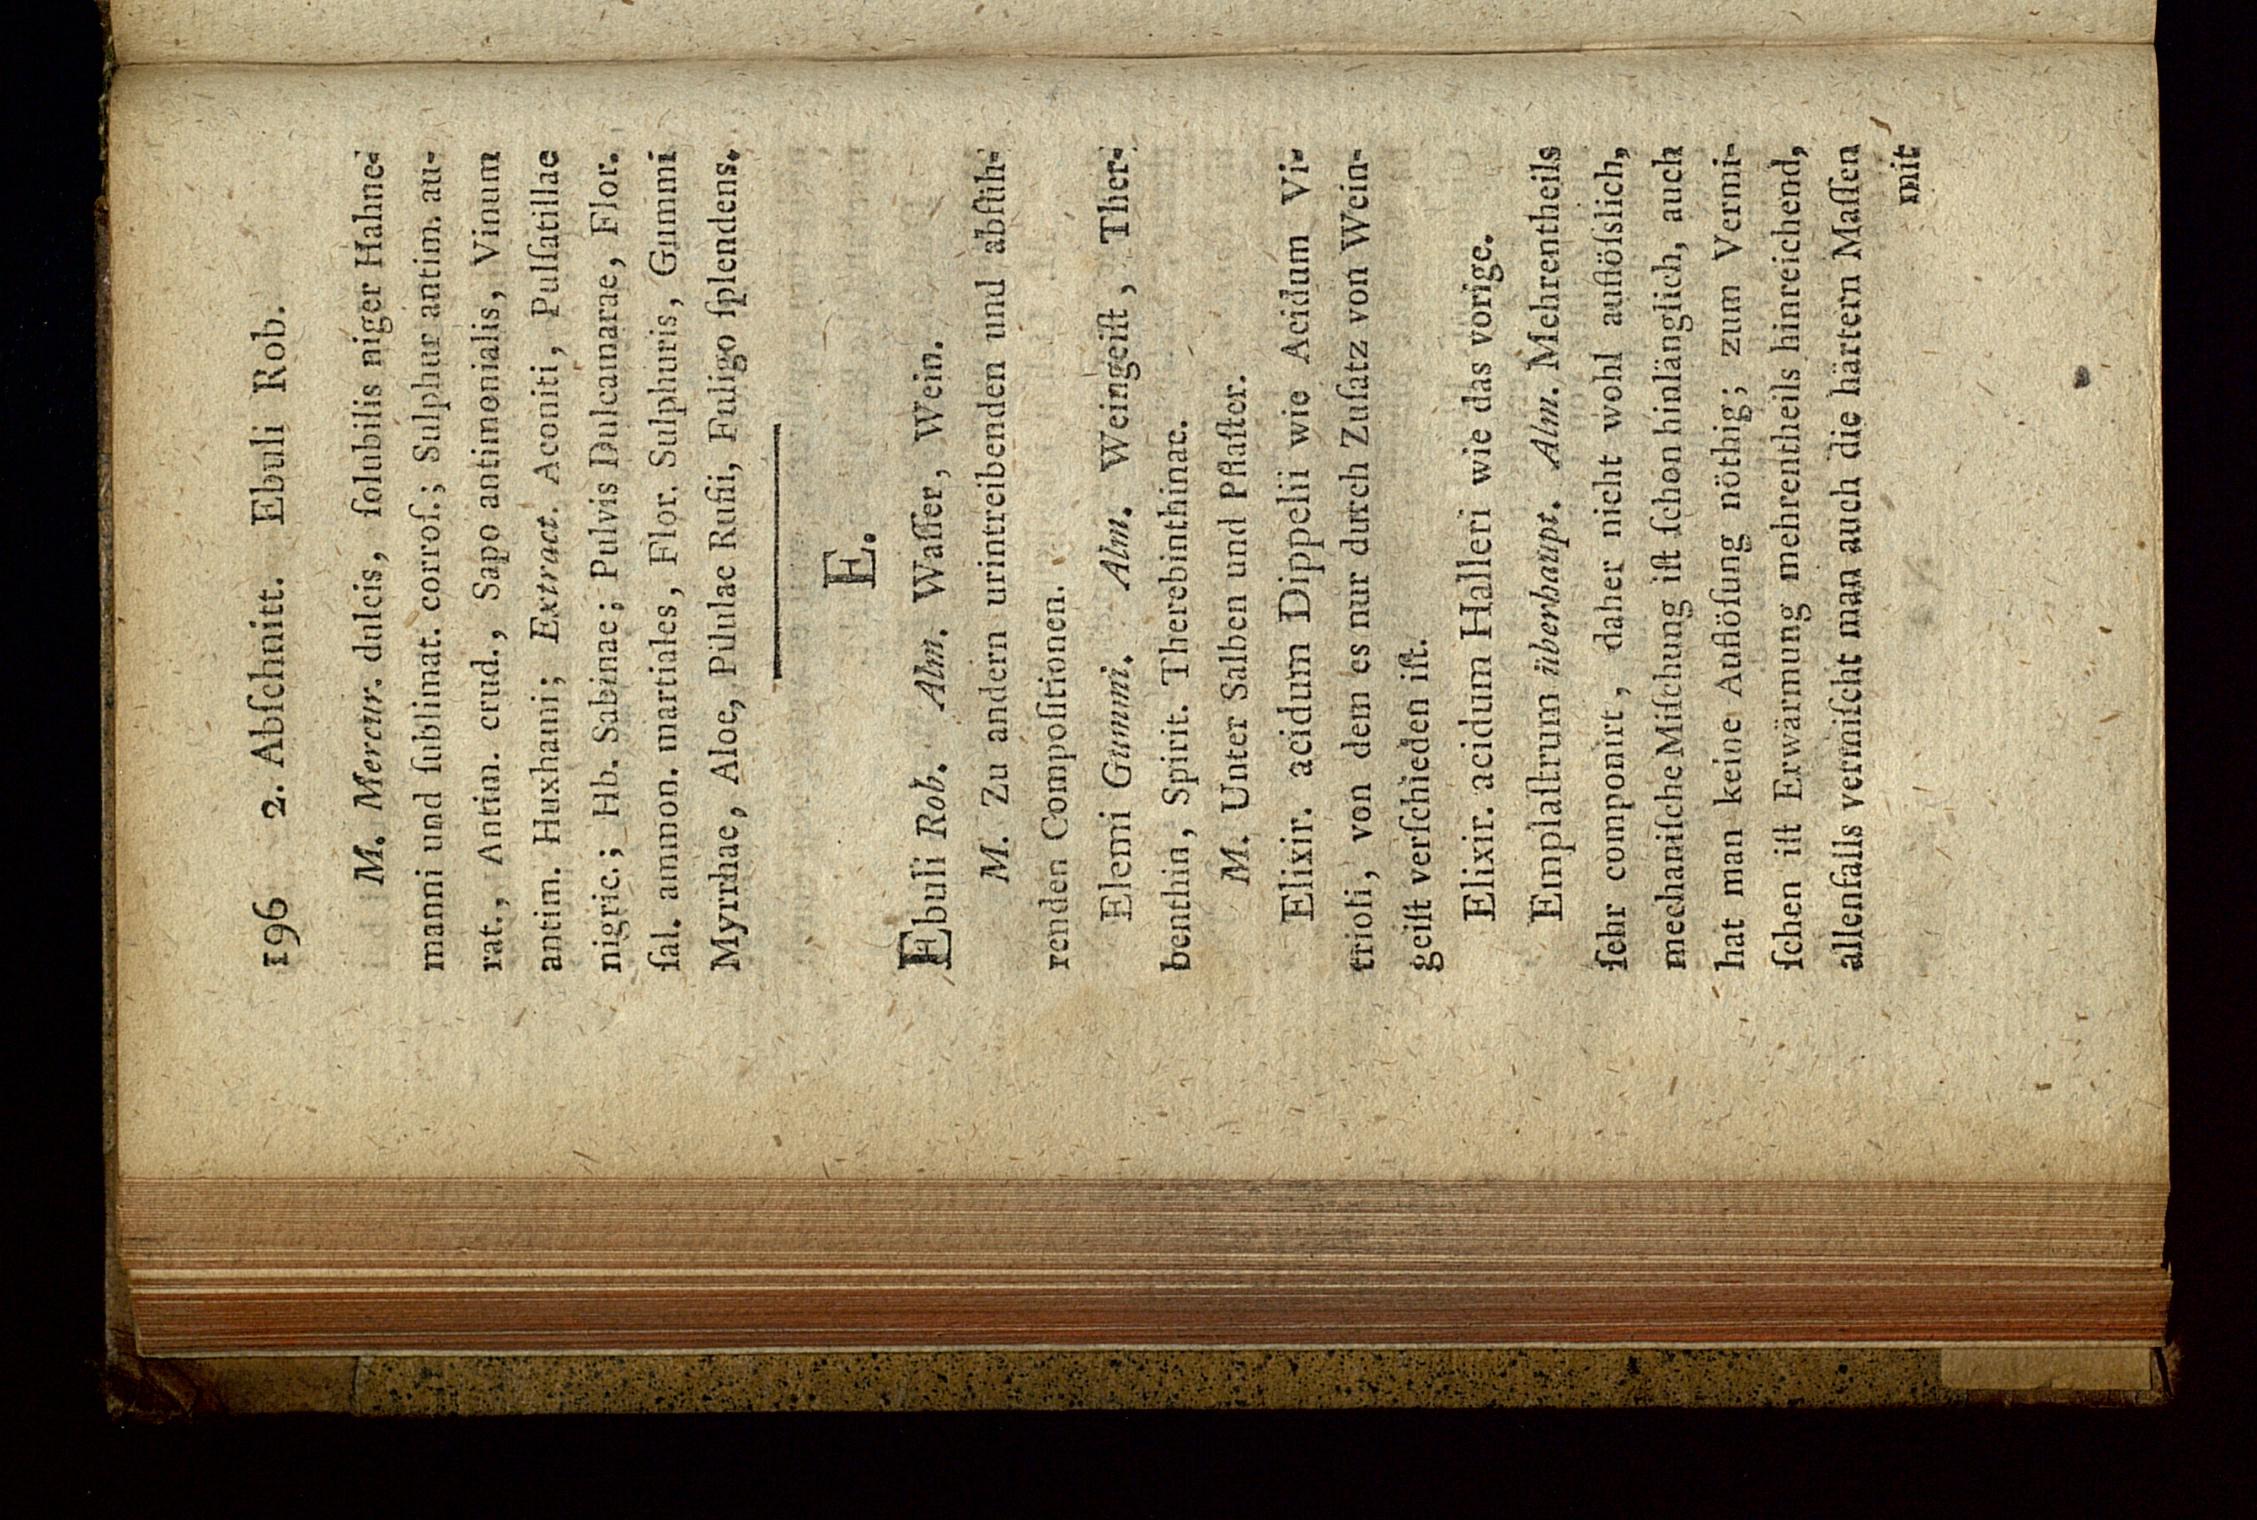 196 2. Abſchnitt. Ebuli Rob.
M. Mercur. dulcis, ſolubilis niger Hahne-
manni und ſublimat. corroſ.; Sulphur antim. au-
rat., Antim. crud., Sapo antimonialis, Vinum
antim. Huxhami; Extract. Aconiti, Pulſatillae
nigric.; Hb. Sabinae; Pulvis Dulcamarae, Flor.
ſal. ammon. martiales, Flor. Sulphuris, Gummi
Myrrhae, Aloe, Pilulae Rufii, Fuligo ſplendens.
E.
Ebuli Rob. Alm. Waſſer, Wein.
M. Zu andern urintreibenden und abfüh-
renden Compoſitionen.
Elemi Gummi. Alm. Weingeiſt, Ther-
benthin, Spirit. Therebinthinae.
M. Unter Salben und Pflaſter.
Elixir. acidum Dippelii wie Acidum Vi-
trioli, von dem es nur durch Zuſatz von Wein-
geiſt verſchieden iſt.
Elixir. acidum Halleri wie das vorige.
Emplaſtrum überhaupt. Alm. Mehrentheils
ſehr componirt, daher nicht wohl auflöſslich,
mechaniſche Miſchung iſt ſchon hinlänglich, auch
hat man keine Auflöſung nöthig; zum Vermi-
ſchen iſt Erwärmung mehrentheils hinreichend,
allenfalls vermiſcht man auch die härtern Maſſen
mit